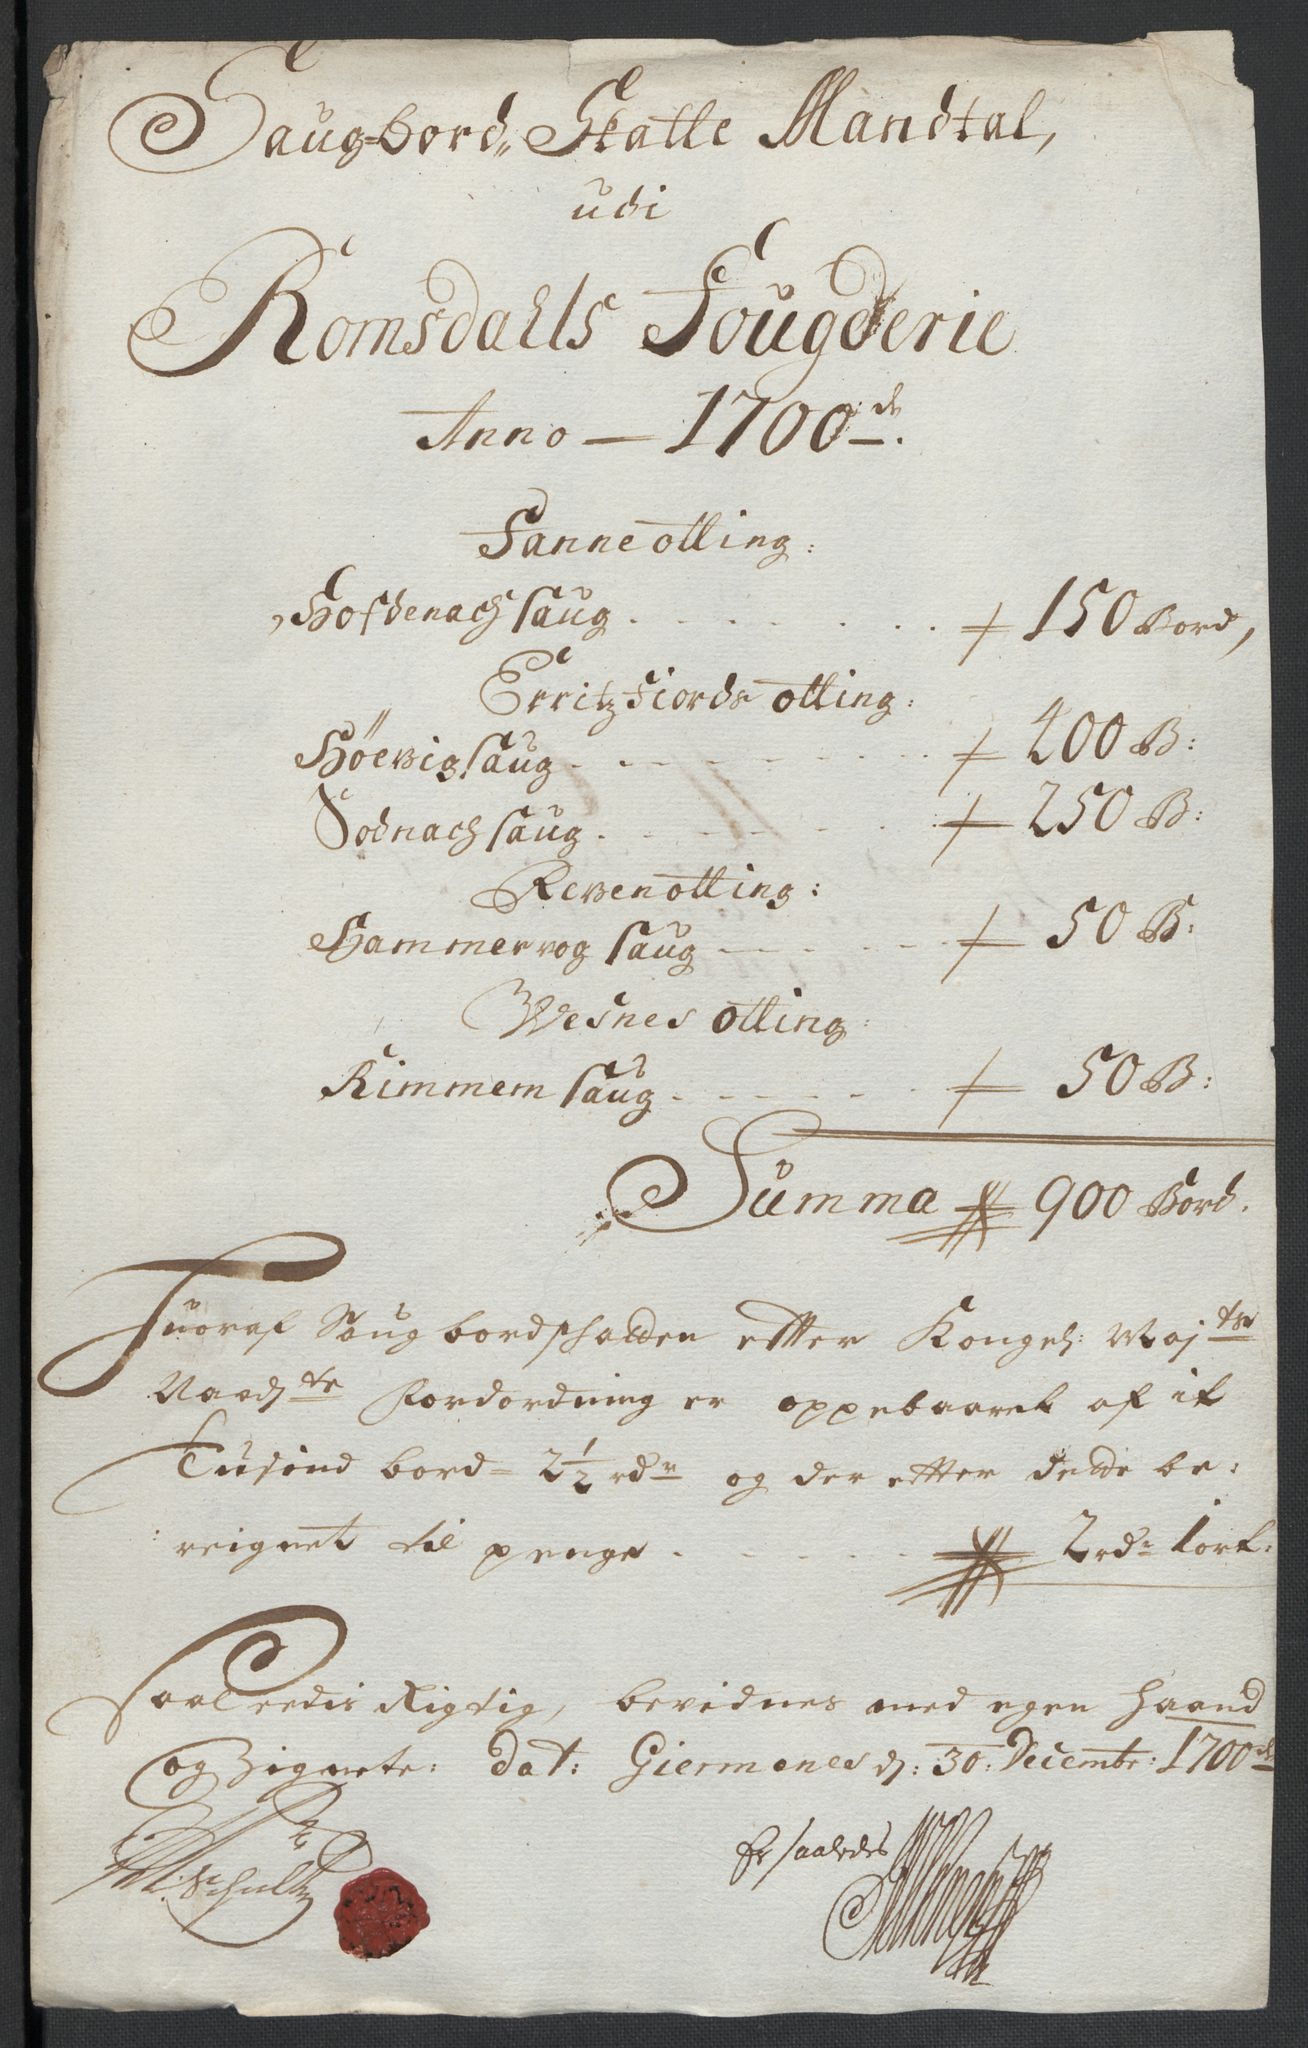 Saugbord,, Skatte Mandtal,
udi
Romsdahls Fougderie
Anno — 1700 de.
Fanne otting:
Hofdenach saug . . . . . . . 150 Bord,
Erritzfiords otting:
Höevig saug . . . . . . . 400 B:
Sodnach saug . . . . . . 250 B:
Reven otting:
Hammervog saug . . . . . 50 B:
Wesnes otting:
Rimmem saug . . . . . 50 B:
Summa 900 Bord.
Huoraf Saugbordschatten efter Kongel: Maj ts
Naads te Forordning er oppebaaret af it
Tusind bord = 2½ rdr og der efter dette be:
reignet til penge . . . . . 2 rdr 1 ort:
Saaleedis Rigtig, bevidnes med egen haand
og Zignete: dat: Giermones d: 30: Decembr: 1700 de
Schultz
Er saaledes